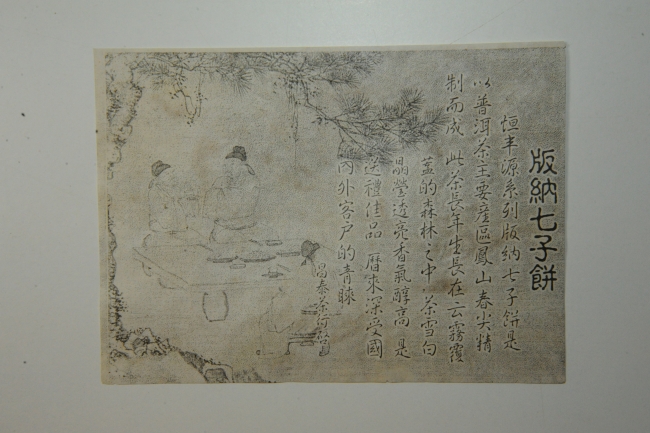 版納七子餅
恒丰源系列版纳七子餅是
以普洱茶主要産區鳳山春尖精
制而成 此茶長年生長在云霧覆
蓋的森林之中 茶雪白
晶瑩透亮香氣醇高 是
送禮佳品 曆來深受國
内外客户的青睞
昌泰茶行啓